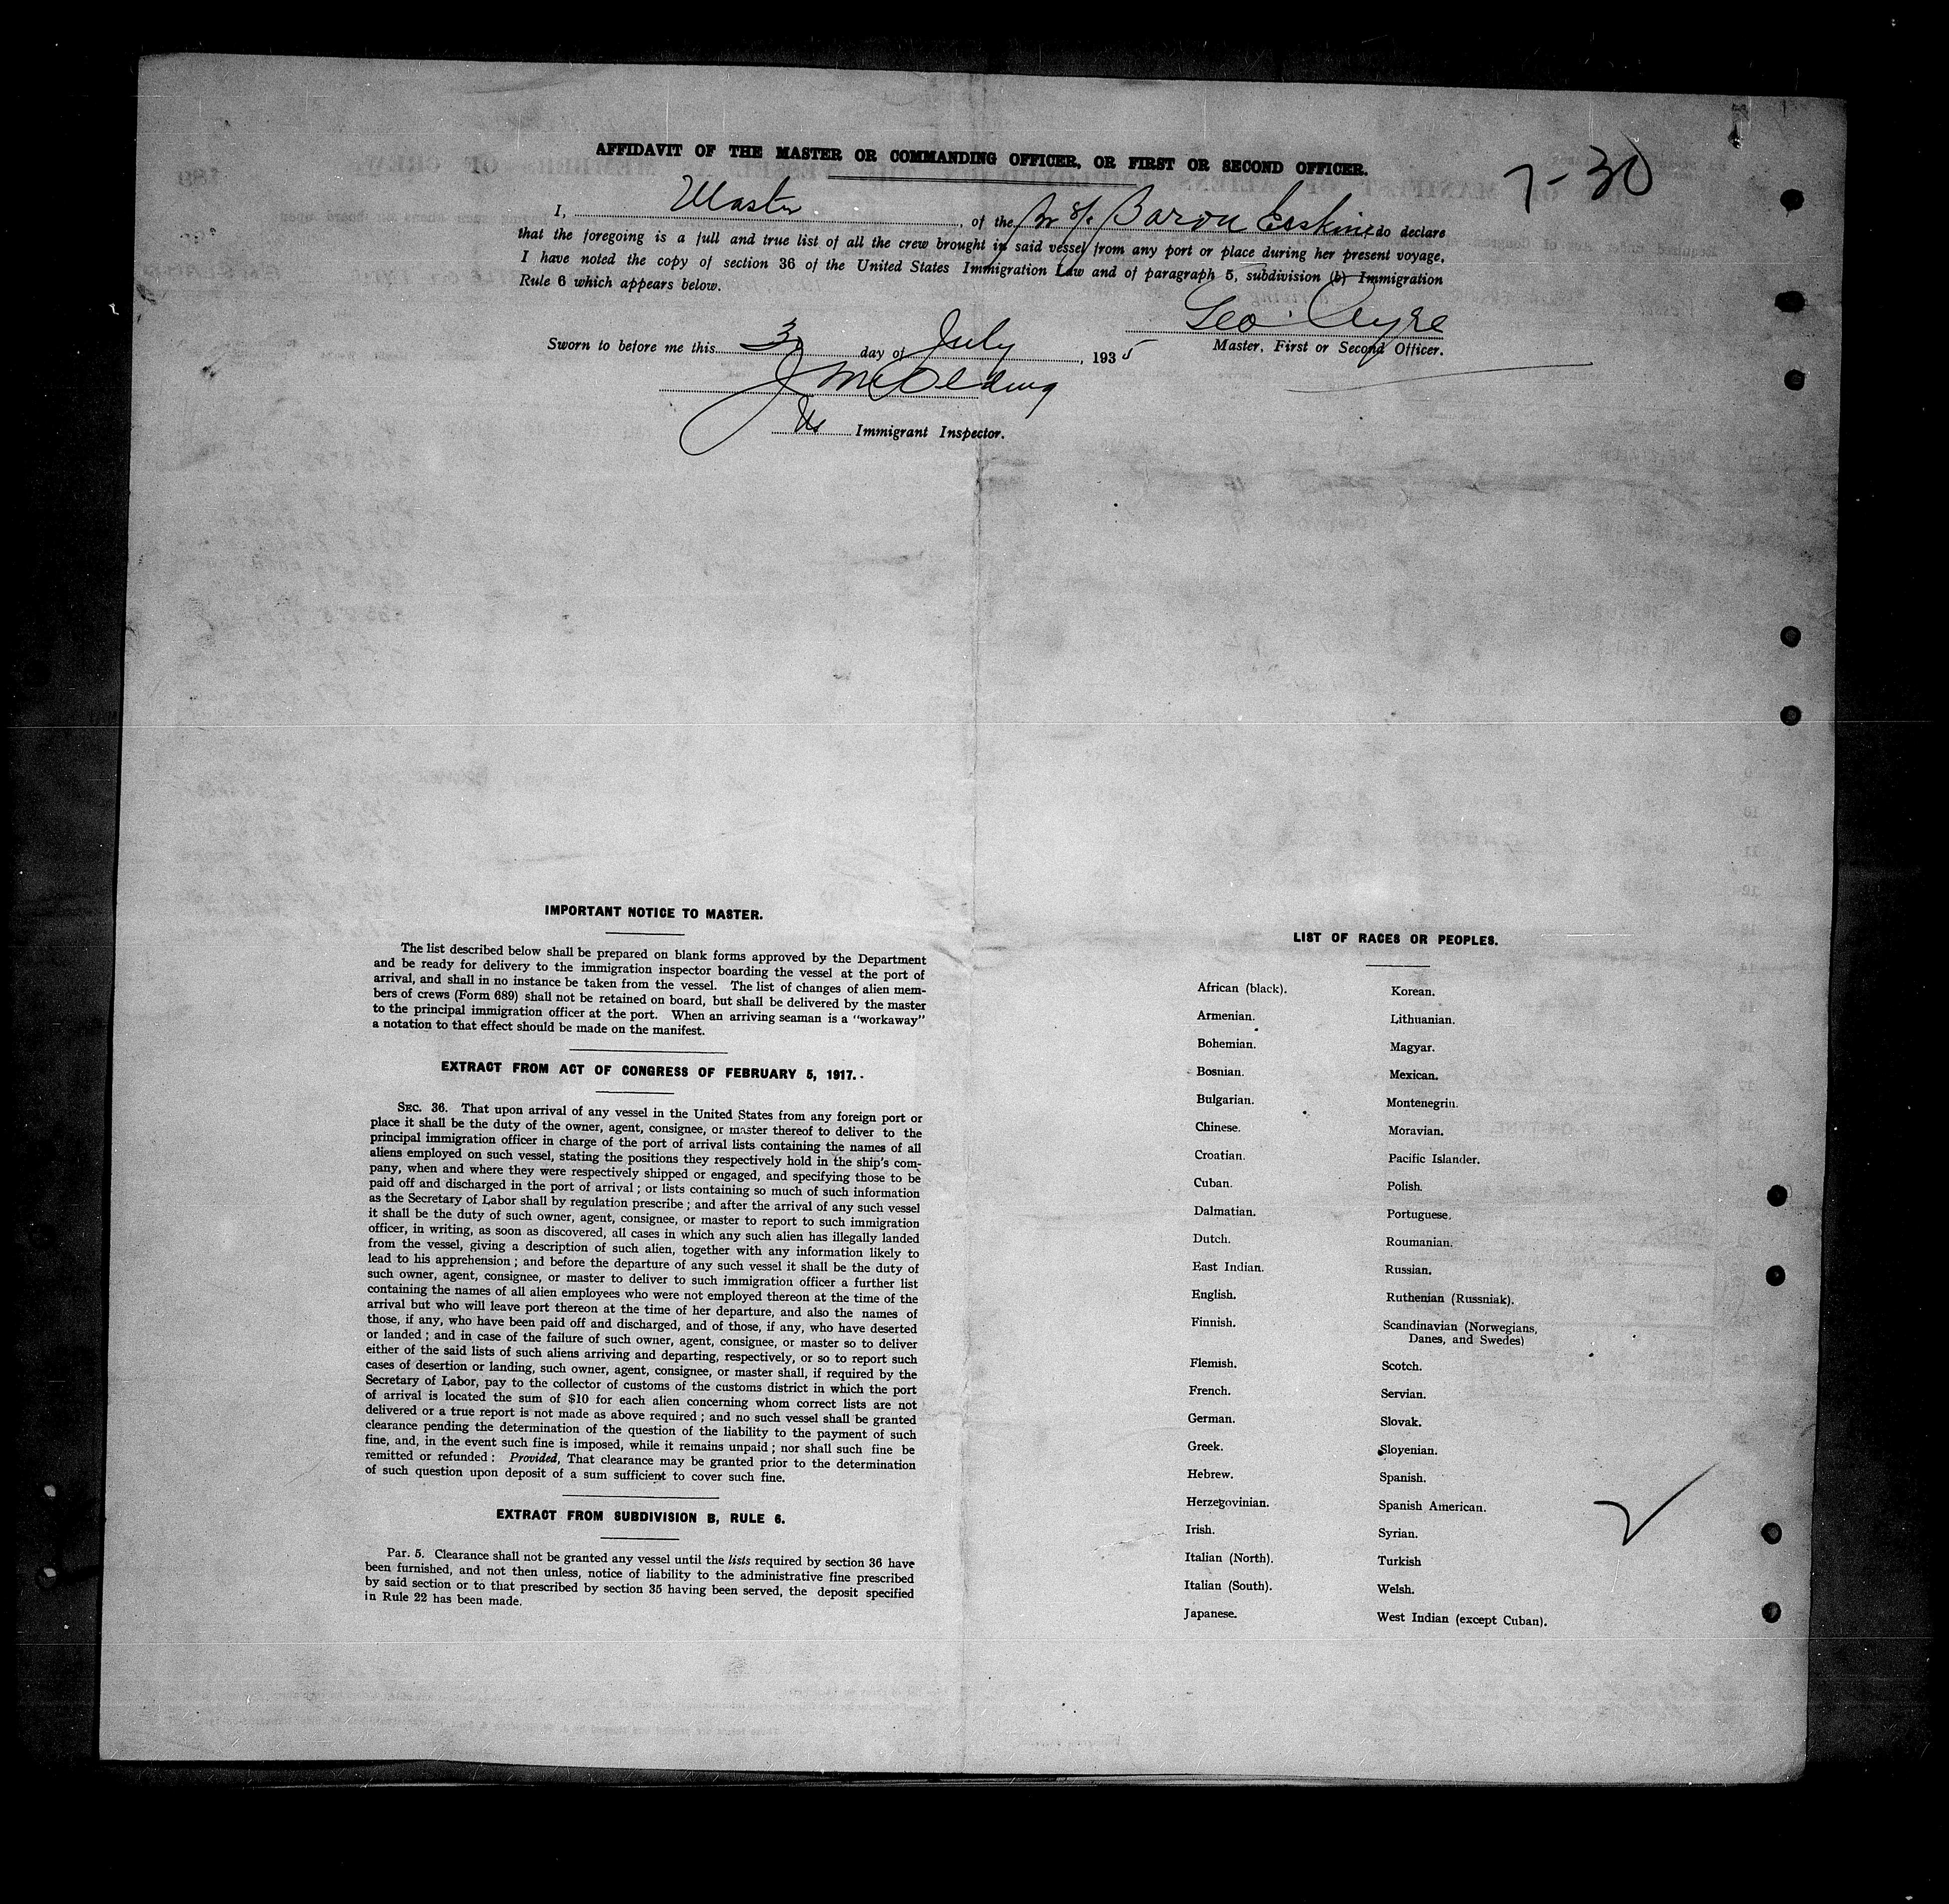 AFFIDAVIT OF THE MASTER OR COMMANDING OFFICER, OR FIRST OR SECOND OFFICER.
7-30
I, Master, of the Br S/S Baron Erskine do declare
that the foregoing is a full and true list of all the crew brought in said vessel from any port or place during her present voyage.
I have noted the copy of section 36 of the United States Immigration Law and of paragraph 5, subdivision (b) Immigration
Rule 6 which appears below.
Geo. Ayre
Master, First or Second Officer.
Sworn to before me this 3 day of July, 1935
US Immigrant Inspector.
IMPORTANT NOTICE TO MASTER.
The list described below shall be prepared on blank forms approved by the Department
and be ready for delivery to the immigration inspector boarding the vessel at the port of
arrival, and shall in no instance be taken from the vessel. The list of changes of alien mem-
bers of crews (Form 689) shall not be retained on board, but shall be delivered by the master
to the principal immigration officer at the port. When an arriving seaman is a "workaway"
a notation to that effect should be made on the manifest.
EXTRACT FROM ACT OF CONGRESS OF FEBRUARY 5, 1917.
SEC. 36. That upon arrival of any vessel in the United States from any foreign port or
place it shall be the duty of the owner, agent, consignee, or master thereof to deliver to the
principal immigration officer in charge of the port of arrival lists containing the names of all
aliens employed on such vessel, stating the positions they respectively hold in the ship's com-
pany, when and where they were respectively shipped or engaged, and specifying those to be
paid off and discharged in the port of arrival; or lists containing so much of such information
as the Secretary of Labor shall by regulation prescribe; and after the arrival of any such vessel
it shall be the duty of such owner, agent, consignee, or master to report to such immigration
officer, in writing, as soon as discovered, all cases in which any such alien has illegally landed
from the vessel, giving a description of such alien, together with any information likely to
lead to his apprehension; and before the departure of any such vessel it shall be the duty of
such owner, agent, consignee, or master to deliver to such immigration officer a further list
containing the names of all alien employees who were not employed thereon at the time of the
arrival but who will leave port thereon at the time of her departure, and also the names of
those, if any, who have been paid off and discharged, and of those, if any, who have deserted
or landed; and in case of the failure of such owner, agent, consignee, or master so to deliver
either of the said lists of such aliens arriving and departing, respectively, or so to report such
cases of desertion or landing, such owner, agent, consignee, or master shall, if required by the
Secretary of Labor, pay to the collector of customs of the customs district in which the port
of arrival is located the sum of $10 for each alien concerning whom correct lists are not
delivered or a true report is not made as above required; and no such vessel shall be granted
clearance pending the determination of the question of the liability to the payment of such
fine, and, in the event such fine is imposed, while it remains unpaid; nor shall such fine be
remitted or refunded: Provided, That clearance may be granted prior to the determination
of such question upon deposit of a sum sufficient to cover such fine.
EXTRACT FROM SUBDIVISION B, RULE 6.
Par. 5. Clearance shall not be granted any vessel until the lists required by section 36 have
been furnished, and not then unless, notice of liability to the administrative fine prescribed
by said section or to that prescribed by section 35 having been served, the deposit specified
in Rule 22 has been made.
LIST OF RACES OR PEOPLES.
African (black).
Armenian.
Bohemian.
Bosnian.
Bulgarian.
Chinese.
Croatian.
Cuban.
Dalmatian.
Dutch.
East Indian.
English.
Finnish.
Flemish.
French.
German.
Greek.
Hebrew.
Herzegovinian.
Irish.
Italian (North).
Italian (South).
Japanese.
Korean.
Lithuanian.
Magyar.
Mexican.
Montenegrin.
Moravian.
Pacific Islander.
Polish.
Portuguese.
Roumanian.
Russian.
Ruthenian (Russniak).
Scandinavian (Norwegians,
Danes, and Swedes)
Scotch.
Servian.
Slovak.
Slovenian.
Spanish.
Spanish American.
Syrian.
Turkish
Welsh.
West Indian (except Cuban).